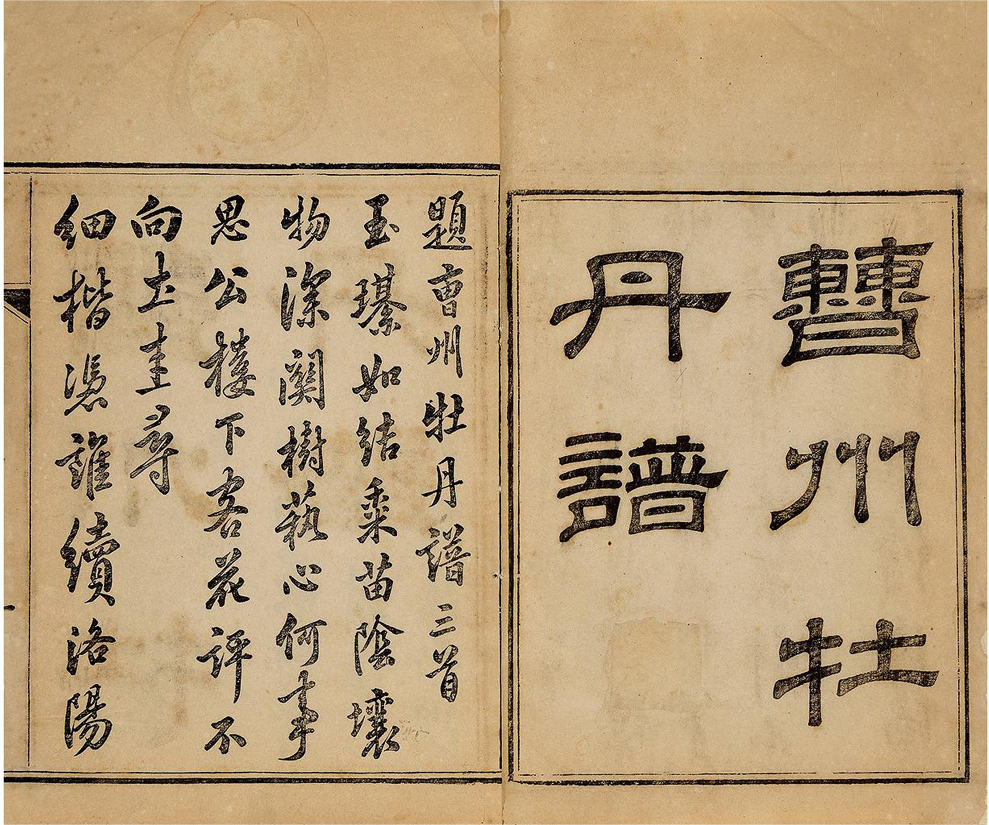 曹州牡
丹譜
題曹州牡丹譜三首
玉𤪌如結黍苗陰壤
物深關樹藝心何事
思公樓下客花評不
向土圭尋
細楷憑誰續洛陽